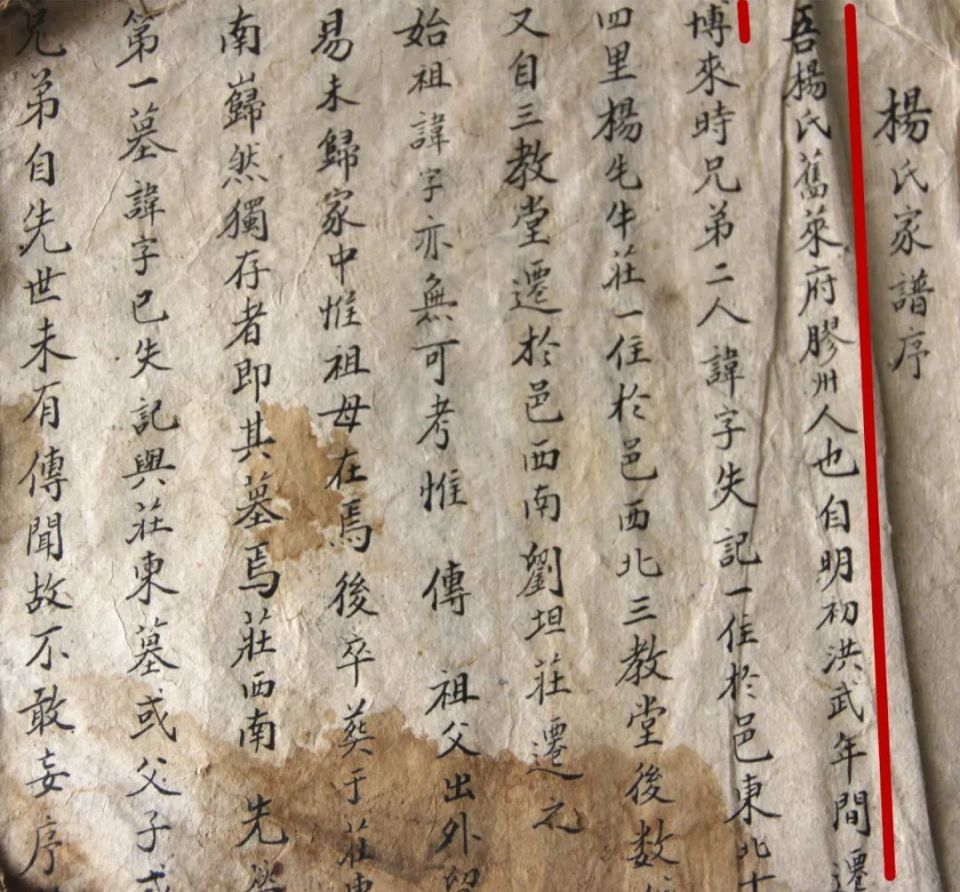 楊氏家譜序
吾楊氏舊萊府膠州人也自明初洪武年間遷
博來時兄弟二人諱字失記一住於邑東北十
四里楊先牛莊一住於邑西北三教堂後数
又自三教堂遷於邑西南劉坦莊遷之
始祖諱字亦無可考惟傳祖父出外
易未歸家中惟祖母在焉後卒葬于莊東
南巋然獨存者即其墓焉莊西南先塋
第一墓諱字已失記與莊東墓或父子或
兄弟自先世未有傳聞故不敢妄序